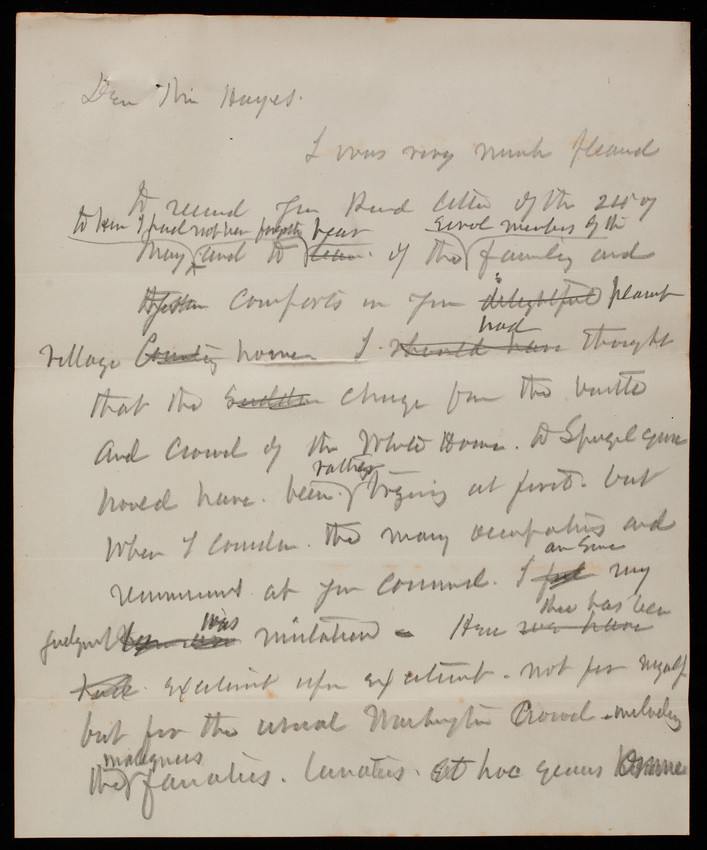 Dear Mrs Hayes.
I was very much pleased
to receive your kind letter of the 24th of
to know I had not been forgotten hear several members of the
May and to learn of the family and
comforts in your delightful pleasant
had
village County home I should have thought
that the sudden change from the bustle
and crowd of the White House. to Spiegel Grove
rather
would have. been trying at first. but
when I consider. the many occupations and
am sure
resources at your command. I feel my
was there has been
judgment mistaken - Here we have
excitement upon excitement. not for myself
but for the usual Washington Crowd. including
the fanatics. lunatics. et hoc genus omne